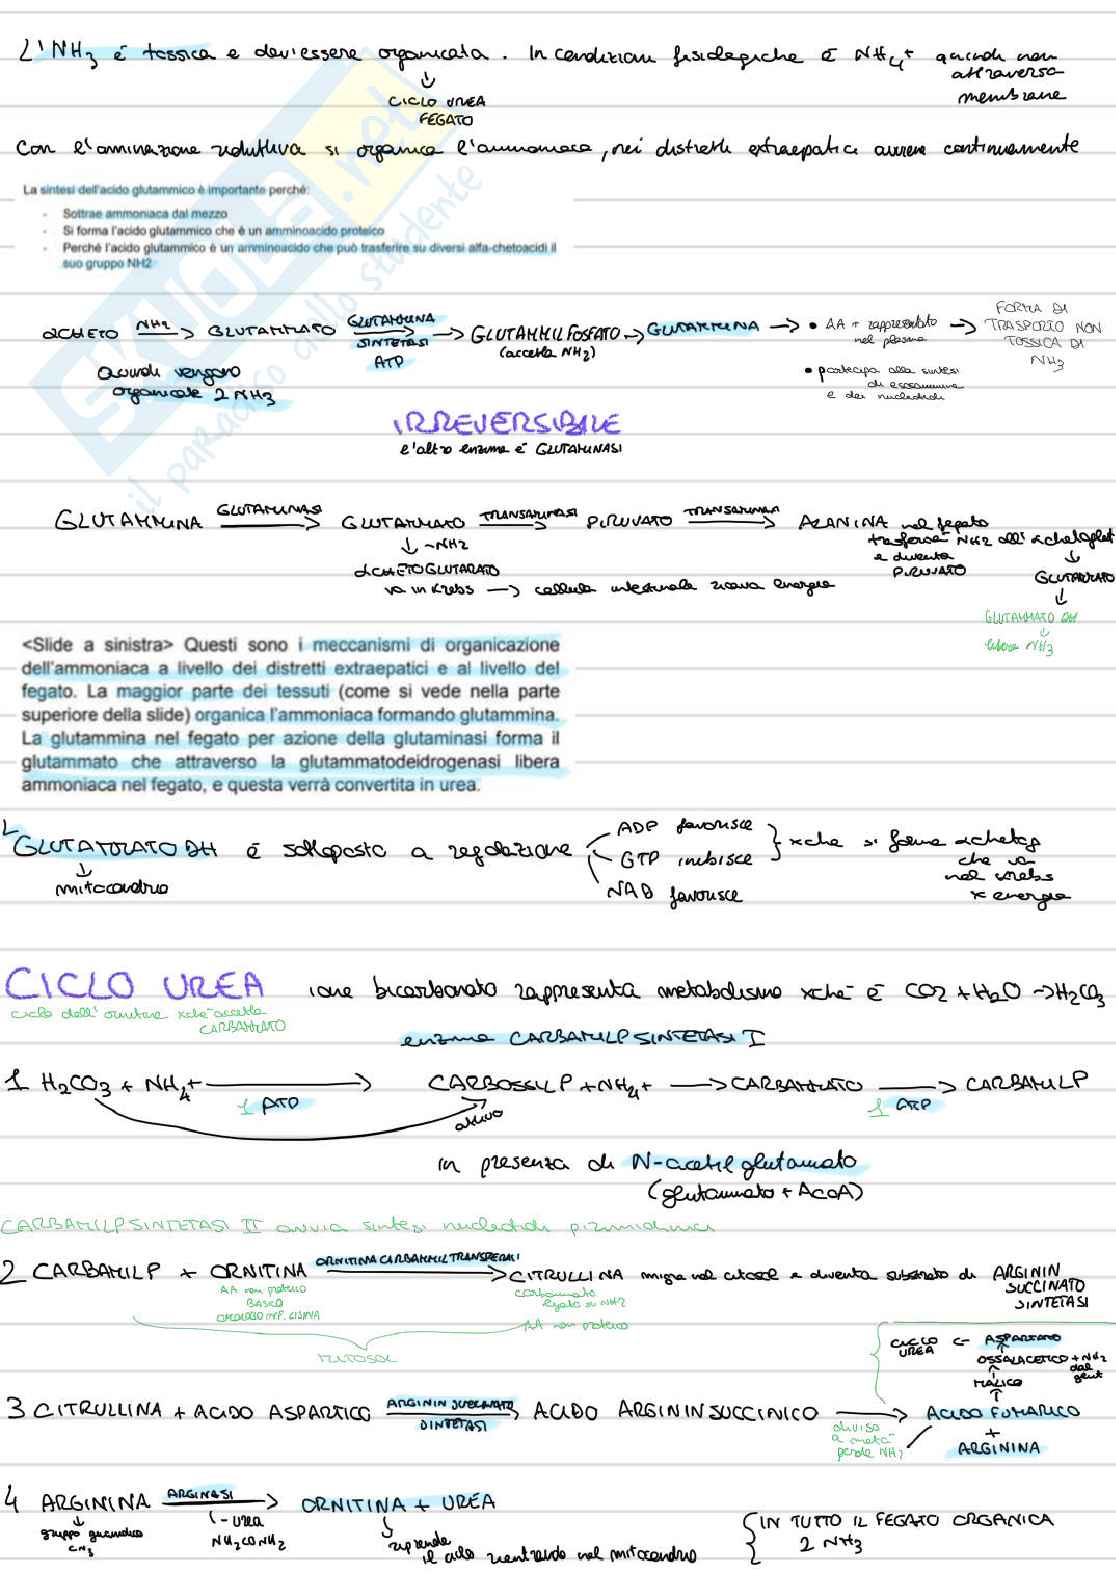 L'NH3 è tossica e dev'essere organicata. In condizioni fisiologiche è NH4+ quindi non
attraversa
membrane
↓
CICLO UREA
FEGATO
Con l'amminazione riduttiva si organica l'ammoniaca, nei distretti extraepatici avviene continuamente
La sintesi dell'acido glutammico è importante perché:
- Sottrae ammoniaca dal mezzo
- Si forma l'acido glutammico che è un amminoacido proteico
- Perché l'acido glutammico è un amminoacido che può trasferire su diversi alfa-chetoacidi il
suo gruppo NH2
αCHETO NH2→ GLUTAMMATO GLUTAMMINA SINTETASI ATP → GLUTAMMILFOSFATO → GLUTAMMINA → • AA + rappresentato → FORMA DI
(accetta NH2) nel plasma TRASPORTO NON
TOSSICA DI
NH3
quindi vengono • partecipa alla sintesi
organicate 2 NH3 di esosammine
e dei nucleotidi
IRREVERSIBILE
l'altro enzima è GLUTAMINASI
GLUTAMMINA GLUTAMINASI→ GLUTAMMATO TRANSAMINASI→ PIRUVATO TRANSAMINASI→ ALANINA nel fegato
↓ -NH2 trasferisce NH2 all'αchetoglut
e diventa
PIRUVATO
αCHETOGLUTARATO ↓
va in Krebs → cellula intestinale ricava energia GLUTAMMATO
↓
GLUTAMMATO DH
↓
libera NH3
<Slide a sinistra> Questi sono i meccanismi di organicazione
dell'ammoniaca a livello dei distretti extraepatici e al livello del
fegato. La maggior parte dei tessuti (come si vede nella parte
superiore della slide) organica l'ammoniaca formando glutammina.
La glutammina nel fegato per azione della glutaminasi forma il
glutammato che attraverso la glutammatodeidrogenasi libera
ammoniaca nel fegato, e questa verrà convertita in urea.
GLUTAMMATO DH è sottoposta a regolazione
↓
mitocondrio
ADP favorisce
GTP inibisce
NAD favorisce
xché si forma αchetog
che va
nel krebs
x energia
CICLO UREA ione bicarbonato rappresenta metabolismo xché è CO2 + H2O → H2CO3
ciclo dell'ornitina xché accetta
CARBAMMATO
enzima CARBAMILP SINTETASI I
1 H2CO3 + NH4+ → CARBOSSILP + NH4+ → CARBAMMATO → CARBAMILP
1 ATP attivo 1 ATP
in presenza di N-acetilglutammato
(glutammato + AcoA)
CARBAMILP SINTETASI II avvia sintesi nucleotidi pirimidinici
2 CARBAMILP + ORNITINA ORNITINA CARBAMMIL TRANSFERASI → CITRULLINA migra nel citosol e diventa substrato di ARGININ
SUCCINATO
SINTETASI
AA non proteico
BASICO
OMOLOGO INF. LISINA
carbammato
legato su NH2
AA non proteico
MITOSOL
CICLO UREA ← ASPARTATO
OSSALACETICO + NH2 dal glut
MALICO
3 CITRULLINA + ACIDO ASPARTICO ARGININ SUCCINATO SINTETASI → ACIDO ARGININSUCCINICO → ACIDO FUMARICO
+
ARGININA
diviso
a metà
perde NH2
4 ARGININA ARGINASI→ ORNITINA + UREA
↓
gruppo guanidico
CN3
- urea
NH2CONH2
↓
riprende
il ciclo rientrando nel mitocondrio
IN TUTTO IL FEGATO ORGANICA
2 NH3
SKUOLA.net
il paradiso dello studente